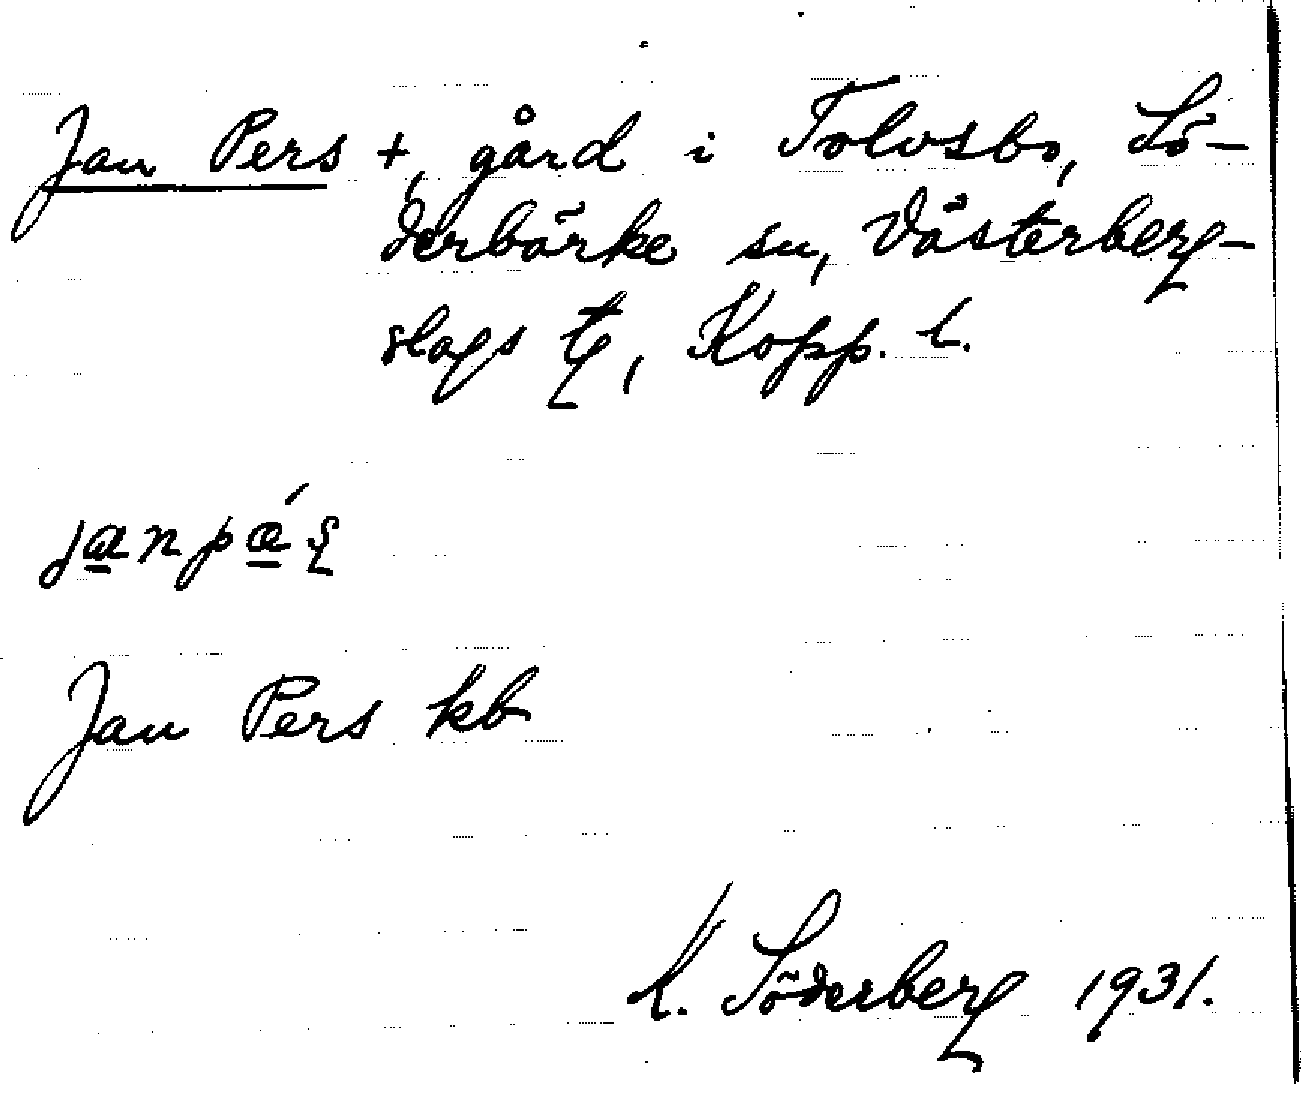 Jan Pers +, gård i Tolvsbo, Sö-
derbärke sn, Västerberg-
slags tg, Kopp. l.
janpä́ʂ
Jan Pers kb
K. Söderberg 1931.